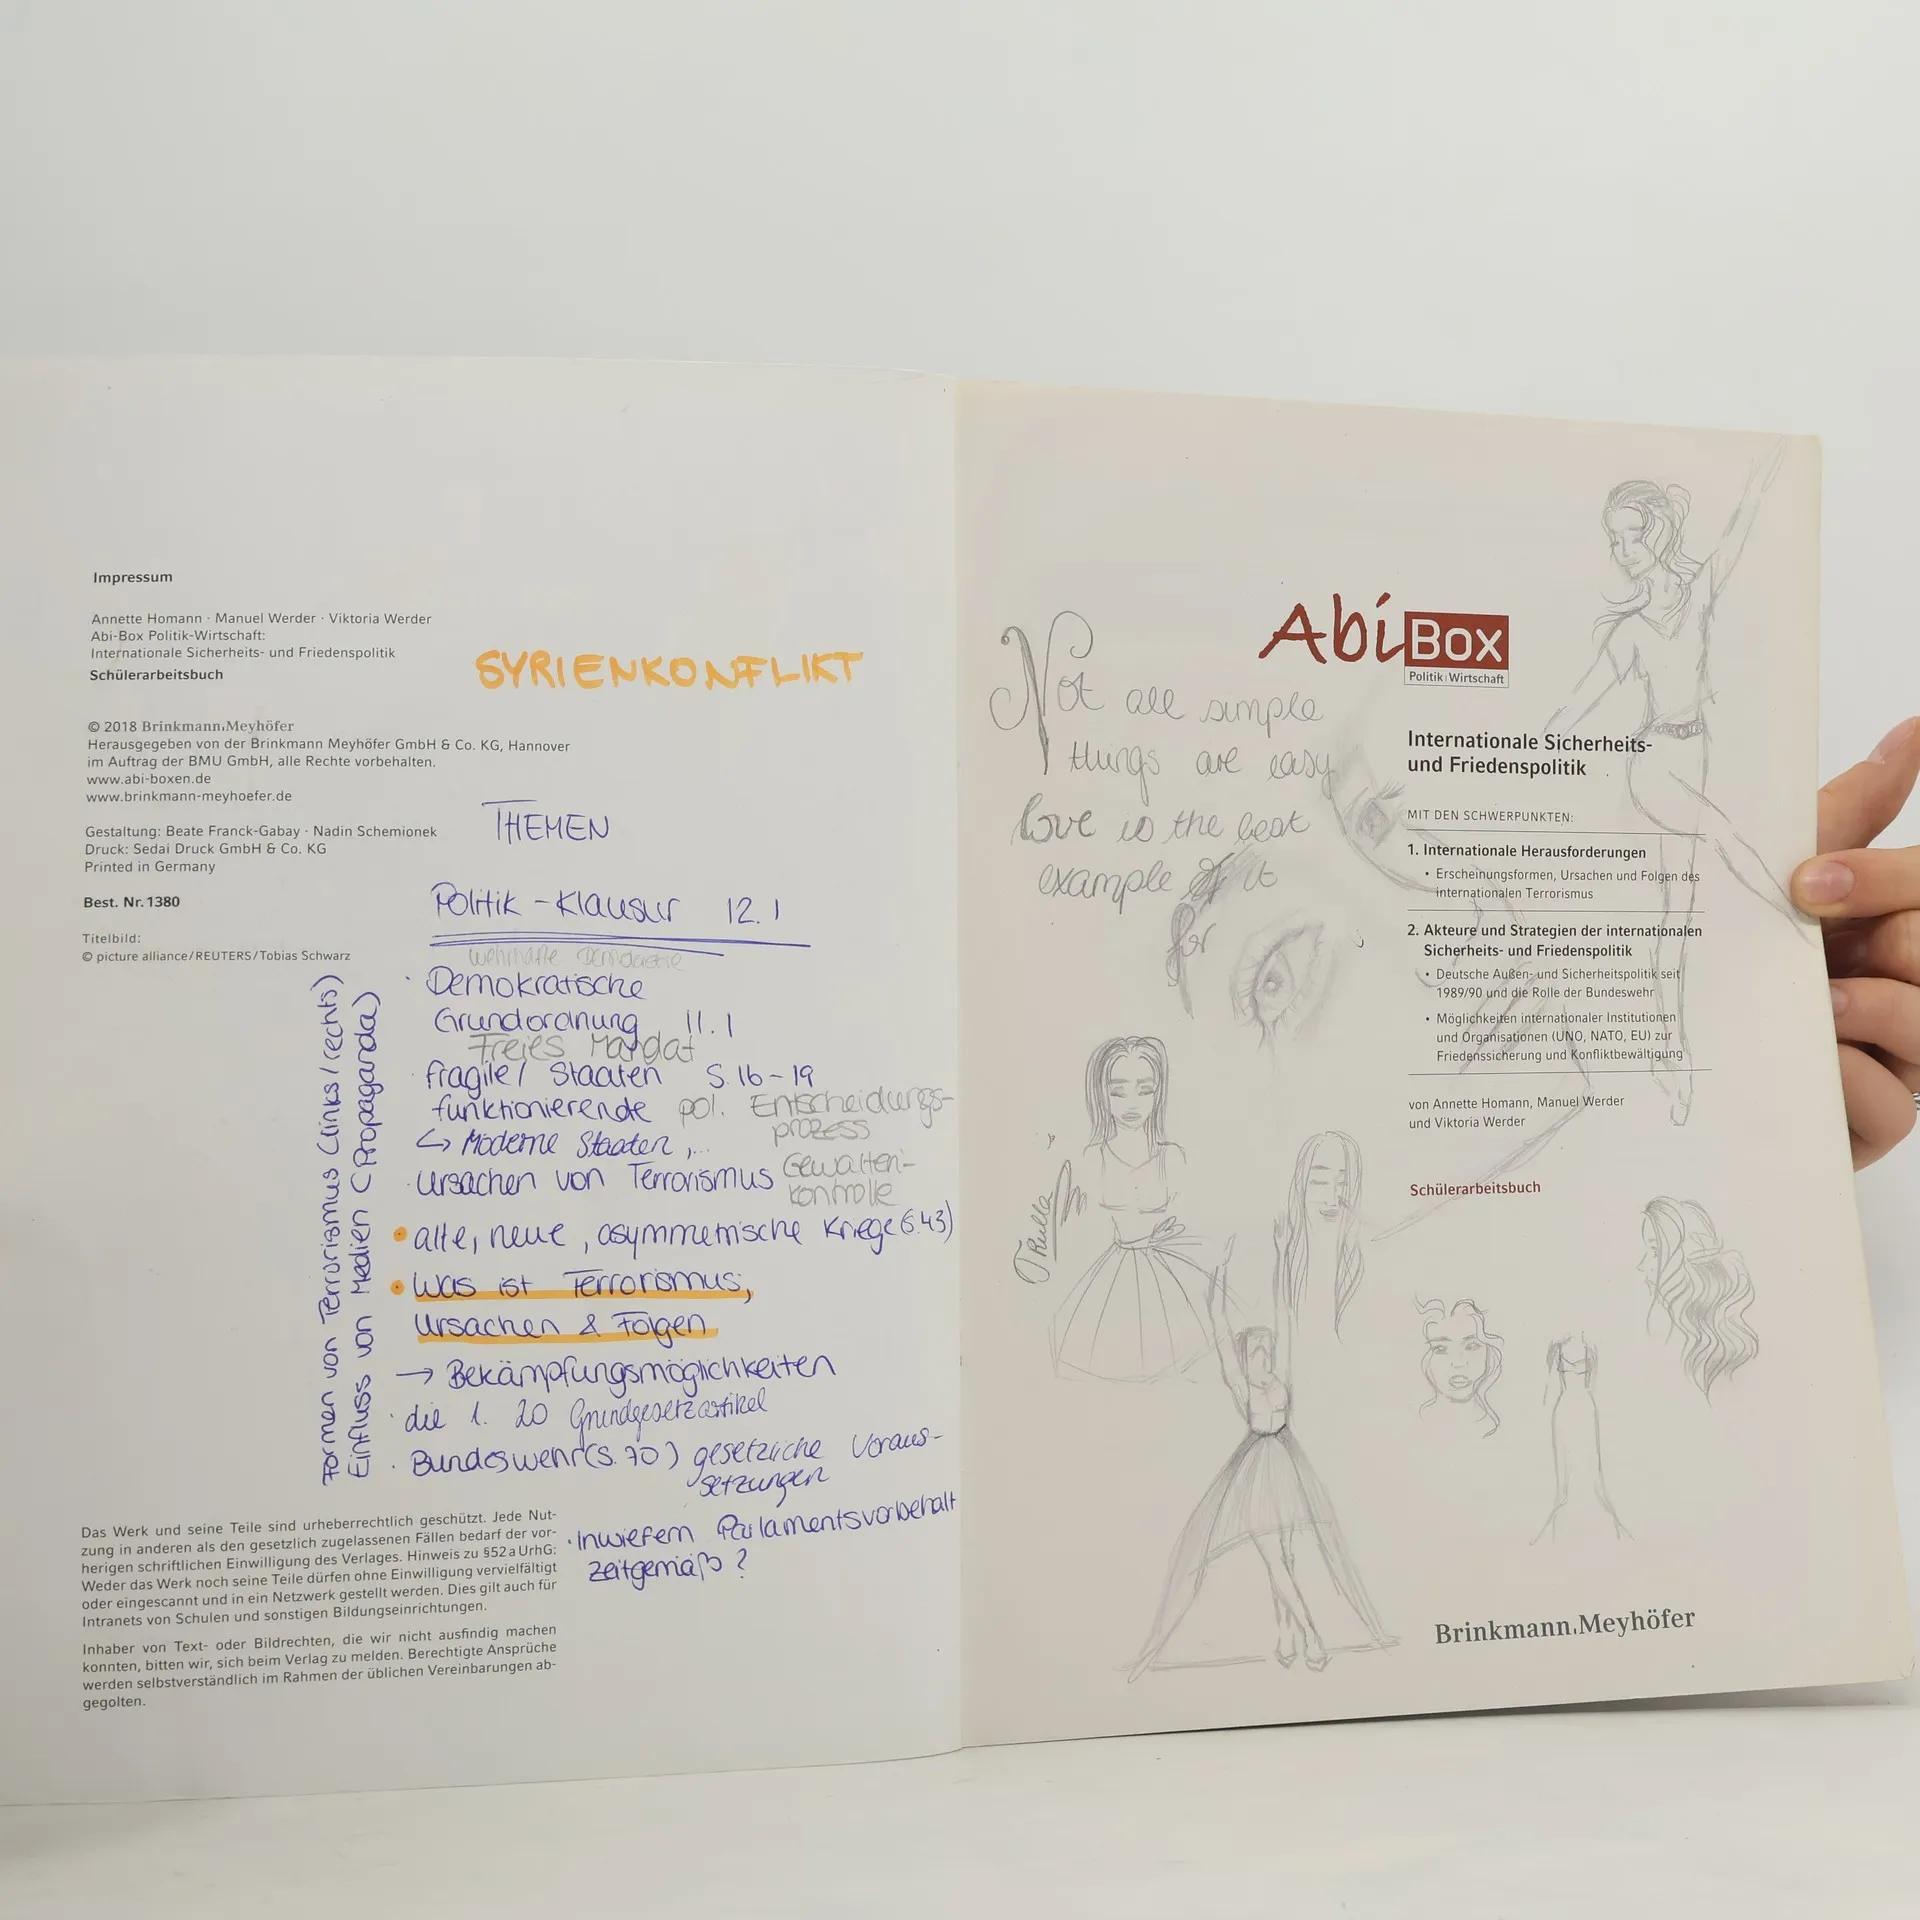 Impressum
Annette Homann · Manuel Werder · Viktoria Werder
Abi-Box Politik-Wirtschaft:
Internationale Sicherheits- und Friedenspolitik
Schülerarbeitsbuch
SYRIENKONFLIKT
© 2018 Brinkmann.Meyhöfer
Herausgegeben von der Brinkmann Meyhöfer GmbH & Co. KG, Hannover
im Auftrag der BMU GmbH, alle Rechte vorbehalten.
www.abi-boxen.de
www.brinkmann-meyhoefer.de
Gestaltung: Beate Franck-Gabay · Nadin Schemionek
Druck: Sedai Druck GmbH & Co. KG
Printed in Germany
Best. Nr. 1380
Titelbild:
© picture alliance/REUTERS/Tobias Schwarz
THEMEN
Politik-Klausur 12.1
wehrhafte Demokratie
· Demokratische
Grundordnung 11.1
Freies Mandat
· fragile/ Staaten S. 16-19
funktionierende pol. Entscheidungs-
prozess
↳ Moderne Staaten,...
· Ursachen von Terrorismus Gewalten-
kontrolle
• alte, neue, asymmetrische Kriege (S.43)
• Was ist Terrorismus,
Ursachen & Folgen
→ Bekämpfungsmöglichkeiten
· die 1. 20 Grundgesetzartikel
· Bundeswehr (S. 70) gesetzliche Voraus-
setzungen
· Inwiefern Parlamentsvorbehalt
zeitgemäß?
Formen von Terrorismus (links/rechts)
Einfluss von Medien (Propaganda)
Das Werk und seine Teile sind urheberrechtlich geschützt. Jede Nut-
zung in anderen als den gesetzlich zugelassenen Fällen bedarf der vor-
herigen schriftlichen Einwilligung des Verlages. Hinweis zu §52 a UrhG:
Weder das Werk noch seine Teile dürfen ohne Einwilligung vervielfältigt
oder eingescannt und in ein Netzwerk gestellt werden. Dies gilt auch für
Intranets von Schulen und sonstigen Bildungseinrichtungen.
Inhaber von Text- oder Bildrechten, die wir nicht ausfindig machen
konnten, bitten wir, sich beim Verlag zu melden. Berechtigte Ansprüche
werden selbstverständlich im Rahmen der üblichen Vereinbarungen ab-
gegolten.
Not all simple
things are easy
love is the best
example of it
for
Abi Box
Politik Wirtschaft
Internationale Sicherheits-
und Friedenspolitik
MIT DEN SCHWERPUNKTEN:
1. Internationale Herausforderungen
• Erscheinungsformen, Ursachen und Folgen des
internationalen Terrorismus
2. Akteure und Strategien der internationalen
Sicherheits- und Friedenspolitik
• Deutsche Außen- und Sicherheitspolitik seit
1989/90 und die Rolle der Bundeswehr
• Möglichkeiten internationaler Institutionen
und Organisationen (UNO, NATO, EU) zur
Friedenssicherung und Konfliktbewältigung
von Annette Homann, Manuel Werder
und Viktoria Werder
Schülerarbeitsbuch
Brinkmann.Meyhöfer